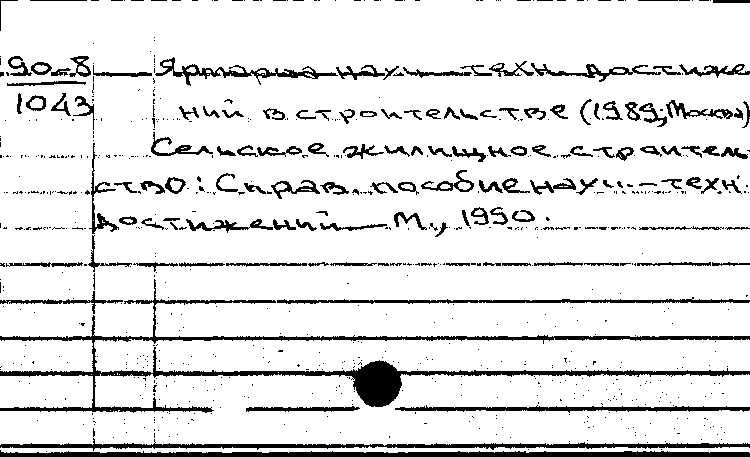 90-8 Ярмарка науч.-техн. достиже
1043 ний в строительстве (1989; Москва)
Сельское жилищное строитель
ство: Справ. пособие науч.-техн.
достижений — М., 1990.